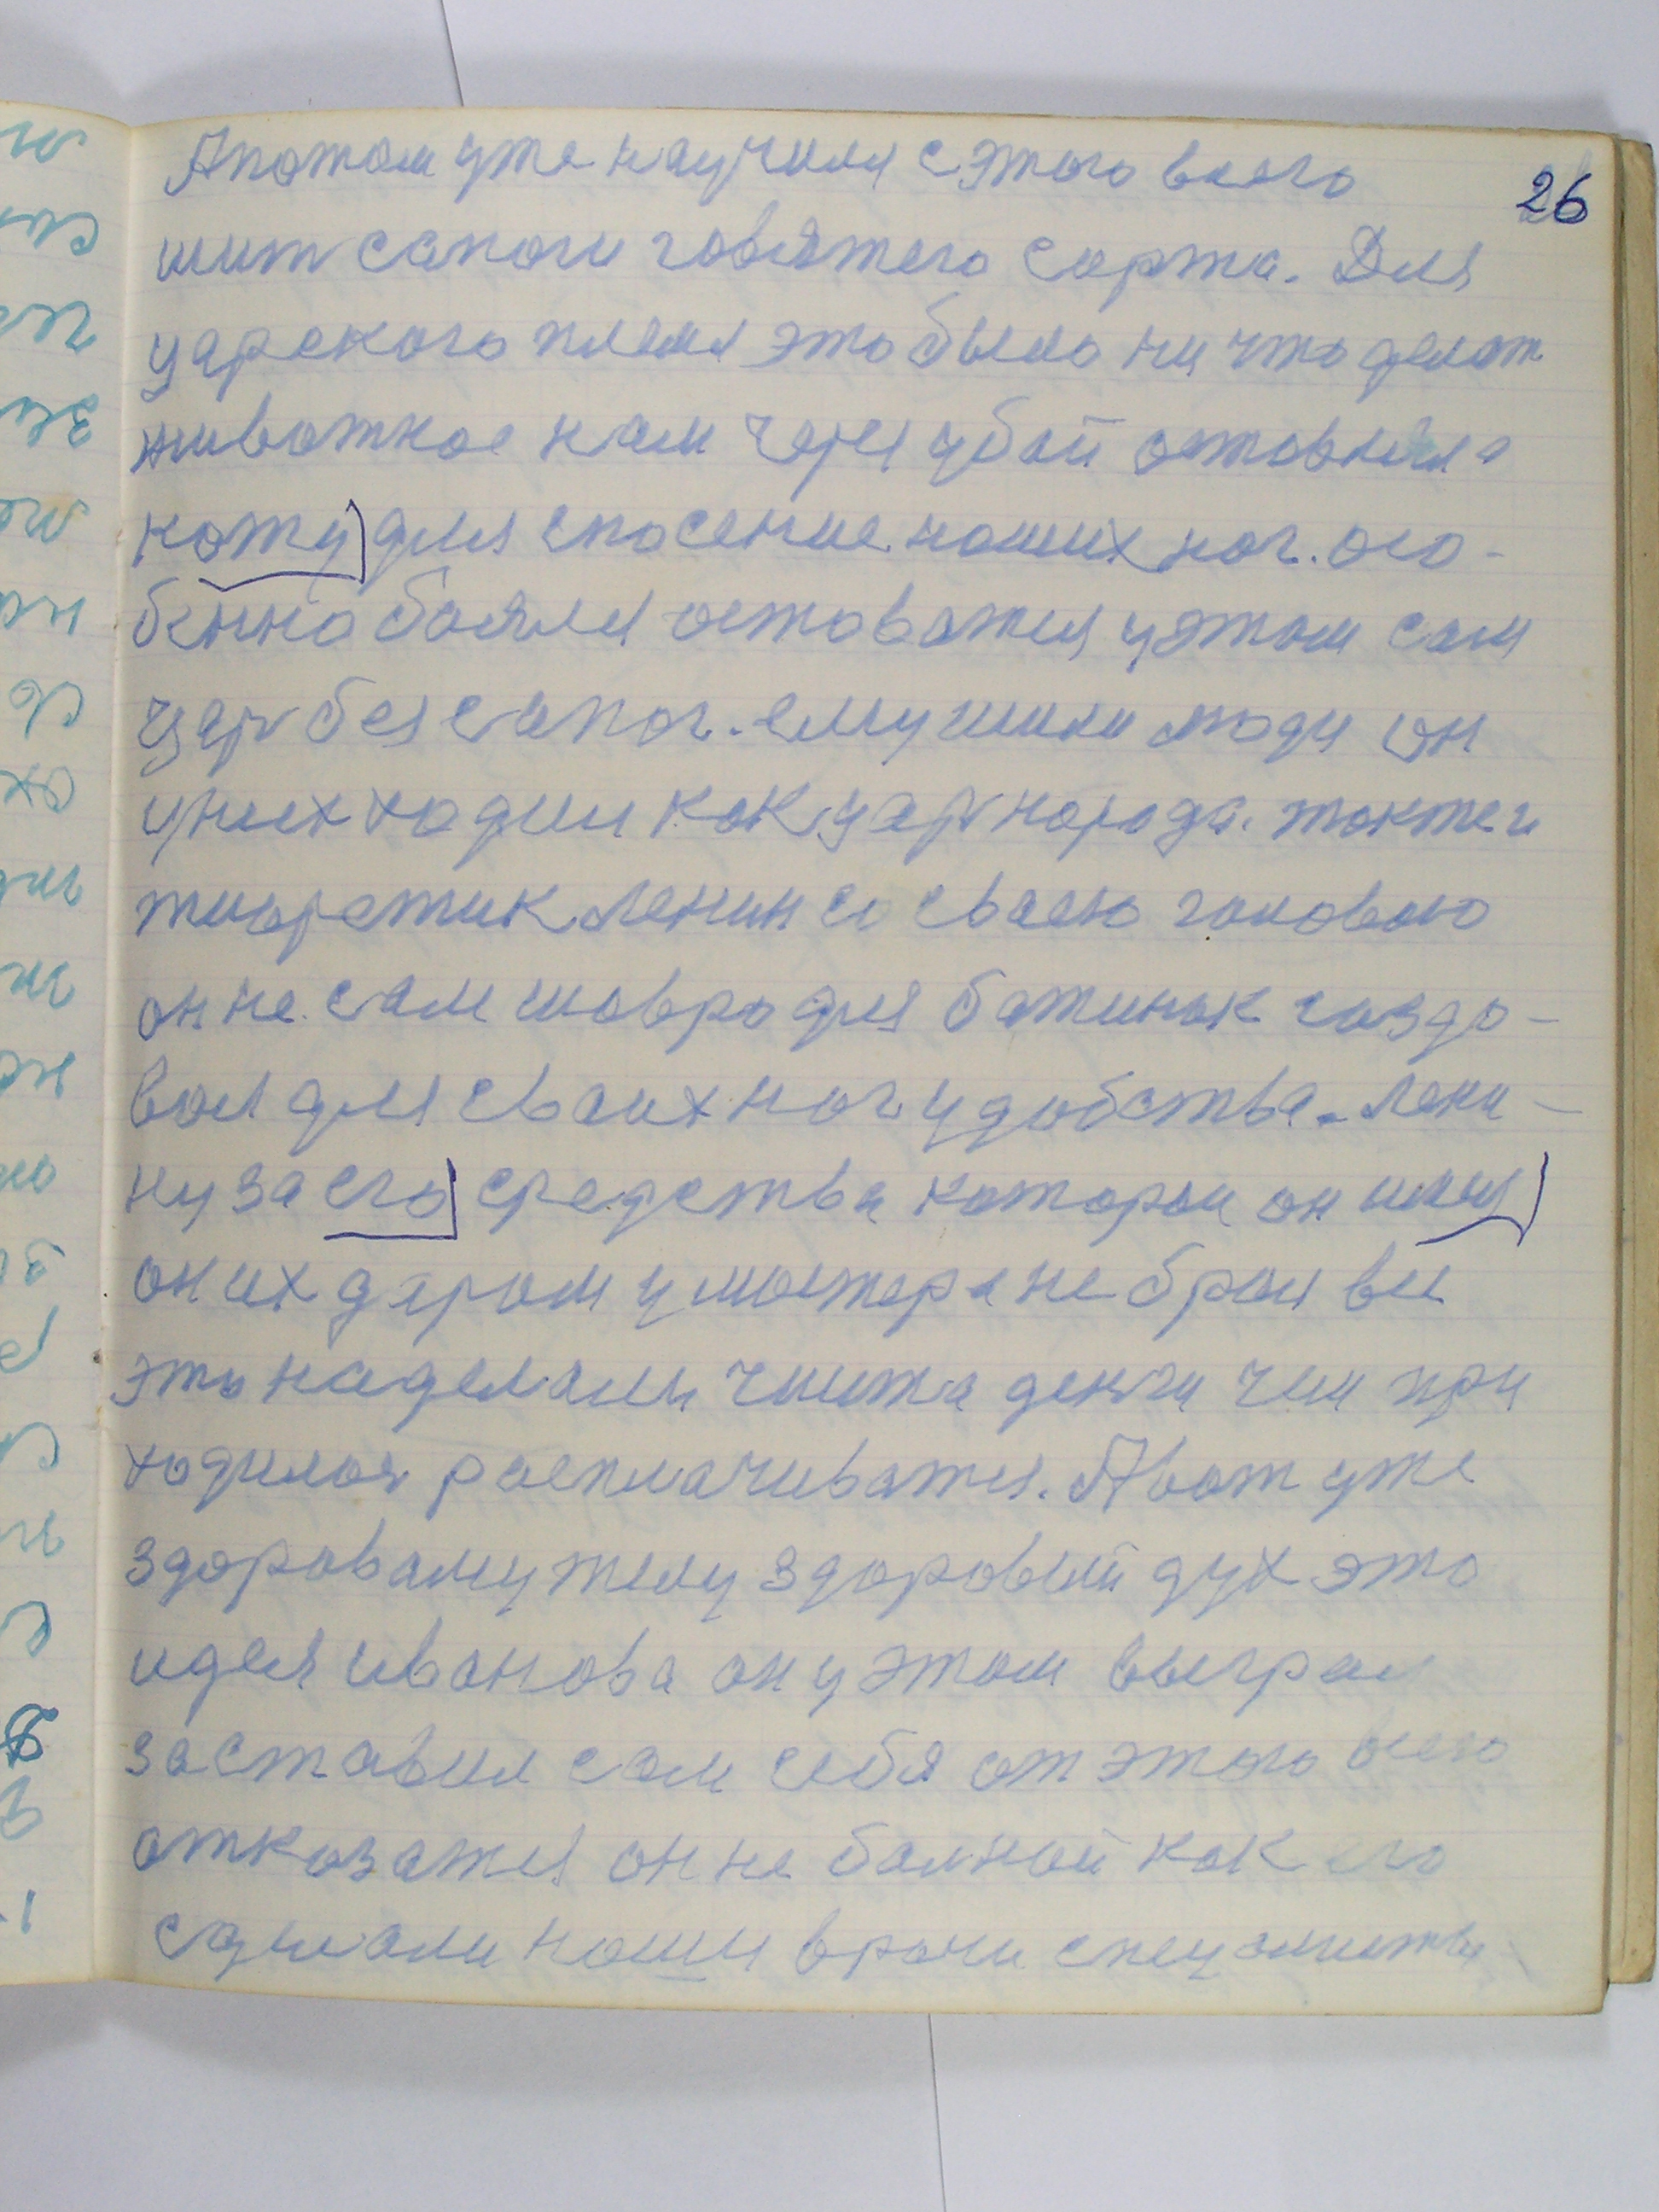 26
А потом уже научился с этого всего
шит сапоги говятего сорта. Для
царского племя это было ни что делат
животное нам через убой оставляла
кожу для спосение наших ног. осо-
бенно боялся оставатся у этом сам
цар без сапог. ему шили люди он
у них ходил как цар народа. также и
тиоретик Ленин со сваею головою
он не сам шавро для батинок создо-
вол для сваих ног удобства. Лени-
ну за его средства которои он имел
он их даром у мастера не брал все
это наделали чиста денги чем при
ходилос расплачиватся. А вот уже
здороваму телу здоровый дух это
идея иванова он у этом выграл
заставил сам себя от этого всего
отказатся он не болной как его
сделали наши врачи специалисты